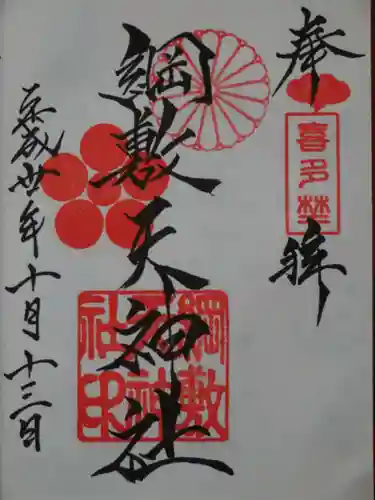 奉拝
喜多埜
綱敷天神社
綱敷
天神
社印
平成廿年十月十三日